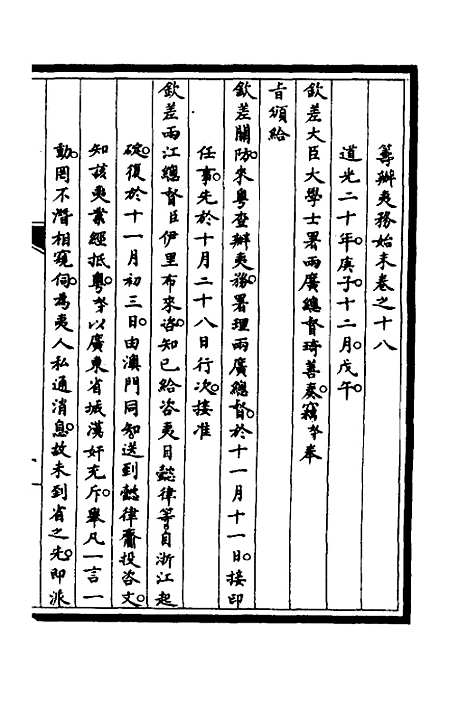 籌辦夷務始末卷之十八
道光二十年。庚子十二月。戊午。
欽差大臣大學士署兩廣總督琦善奏。竊奴才奉
旨頒給
欽差關防。來粵查辦夷務。署理兩廣總督。於十一月十一日。接印
任事。先於十月二十八日行次。接准
欽差兩江總督臣伊里布來咨。知已給咨夷目懿律等。自浙江起
碇。復於十一月初三日。由澳門同知送到懿律齎投咨文。
知該夷業經抵粵。奴才以廣東省城漢奸充斥。舉凡一言一
動。罔不潛相窺伺。為夷人私通消息。故未到省之先。即派